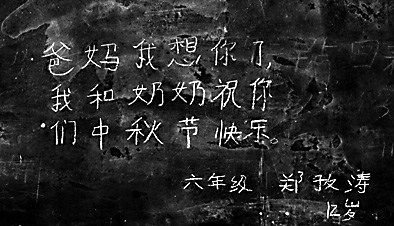 爸妈我想你了,
我和奶奶祝你
们中秋节快乐。
六年级 郑孜涛
12岁